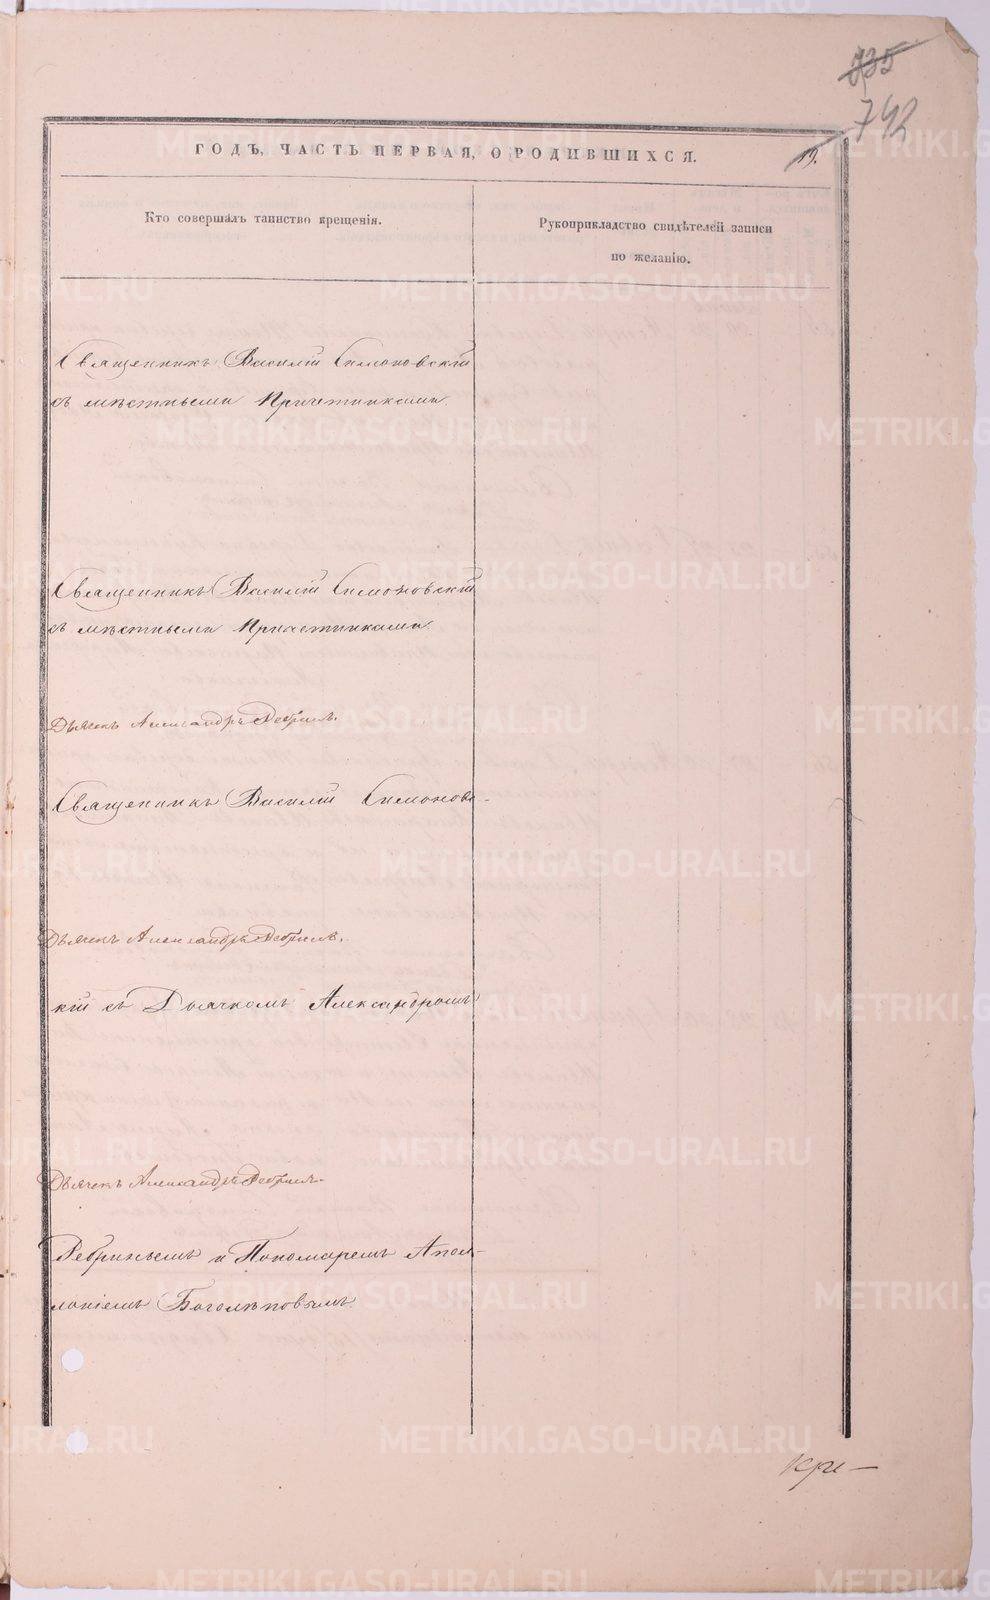 735
742
ГОДЪ, ЧАСТЬ ПЕРВАЯ, О РОДИВШИХСЯ.
19.
Кто совершалъ таинство крещенія.
Рукоприкладство свидѣтелей записи
по желанію.
Священникъ Василій Симоновскій
съ мѣстными Причетниками.
Священникъ Василій Симоновскій
съ мѣстными Причетниками.
Дьячекъ Александръ Ребринъ.
Священникъ Василій Симоновс-
Дьячекъ Александръ Ребринъ.
кій съ Дьячкомъ Александромъ
Дьячекъ Александръ Ребринъ.
Ребринымъ и Пономаремъ Апол-
лоніемъ Боголѣповымъ.
METRIKI.GASO-URAL.RU